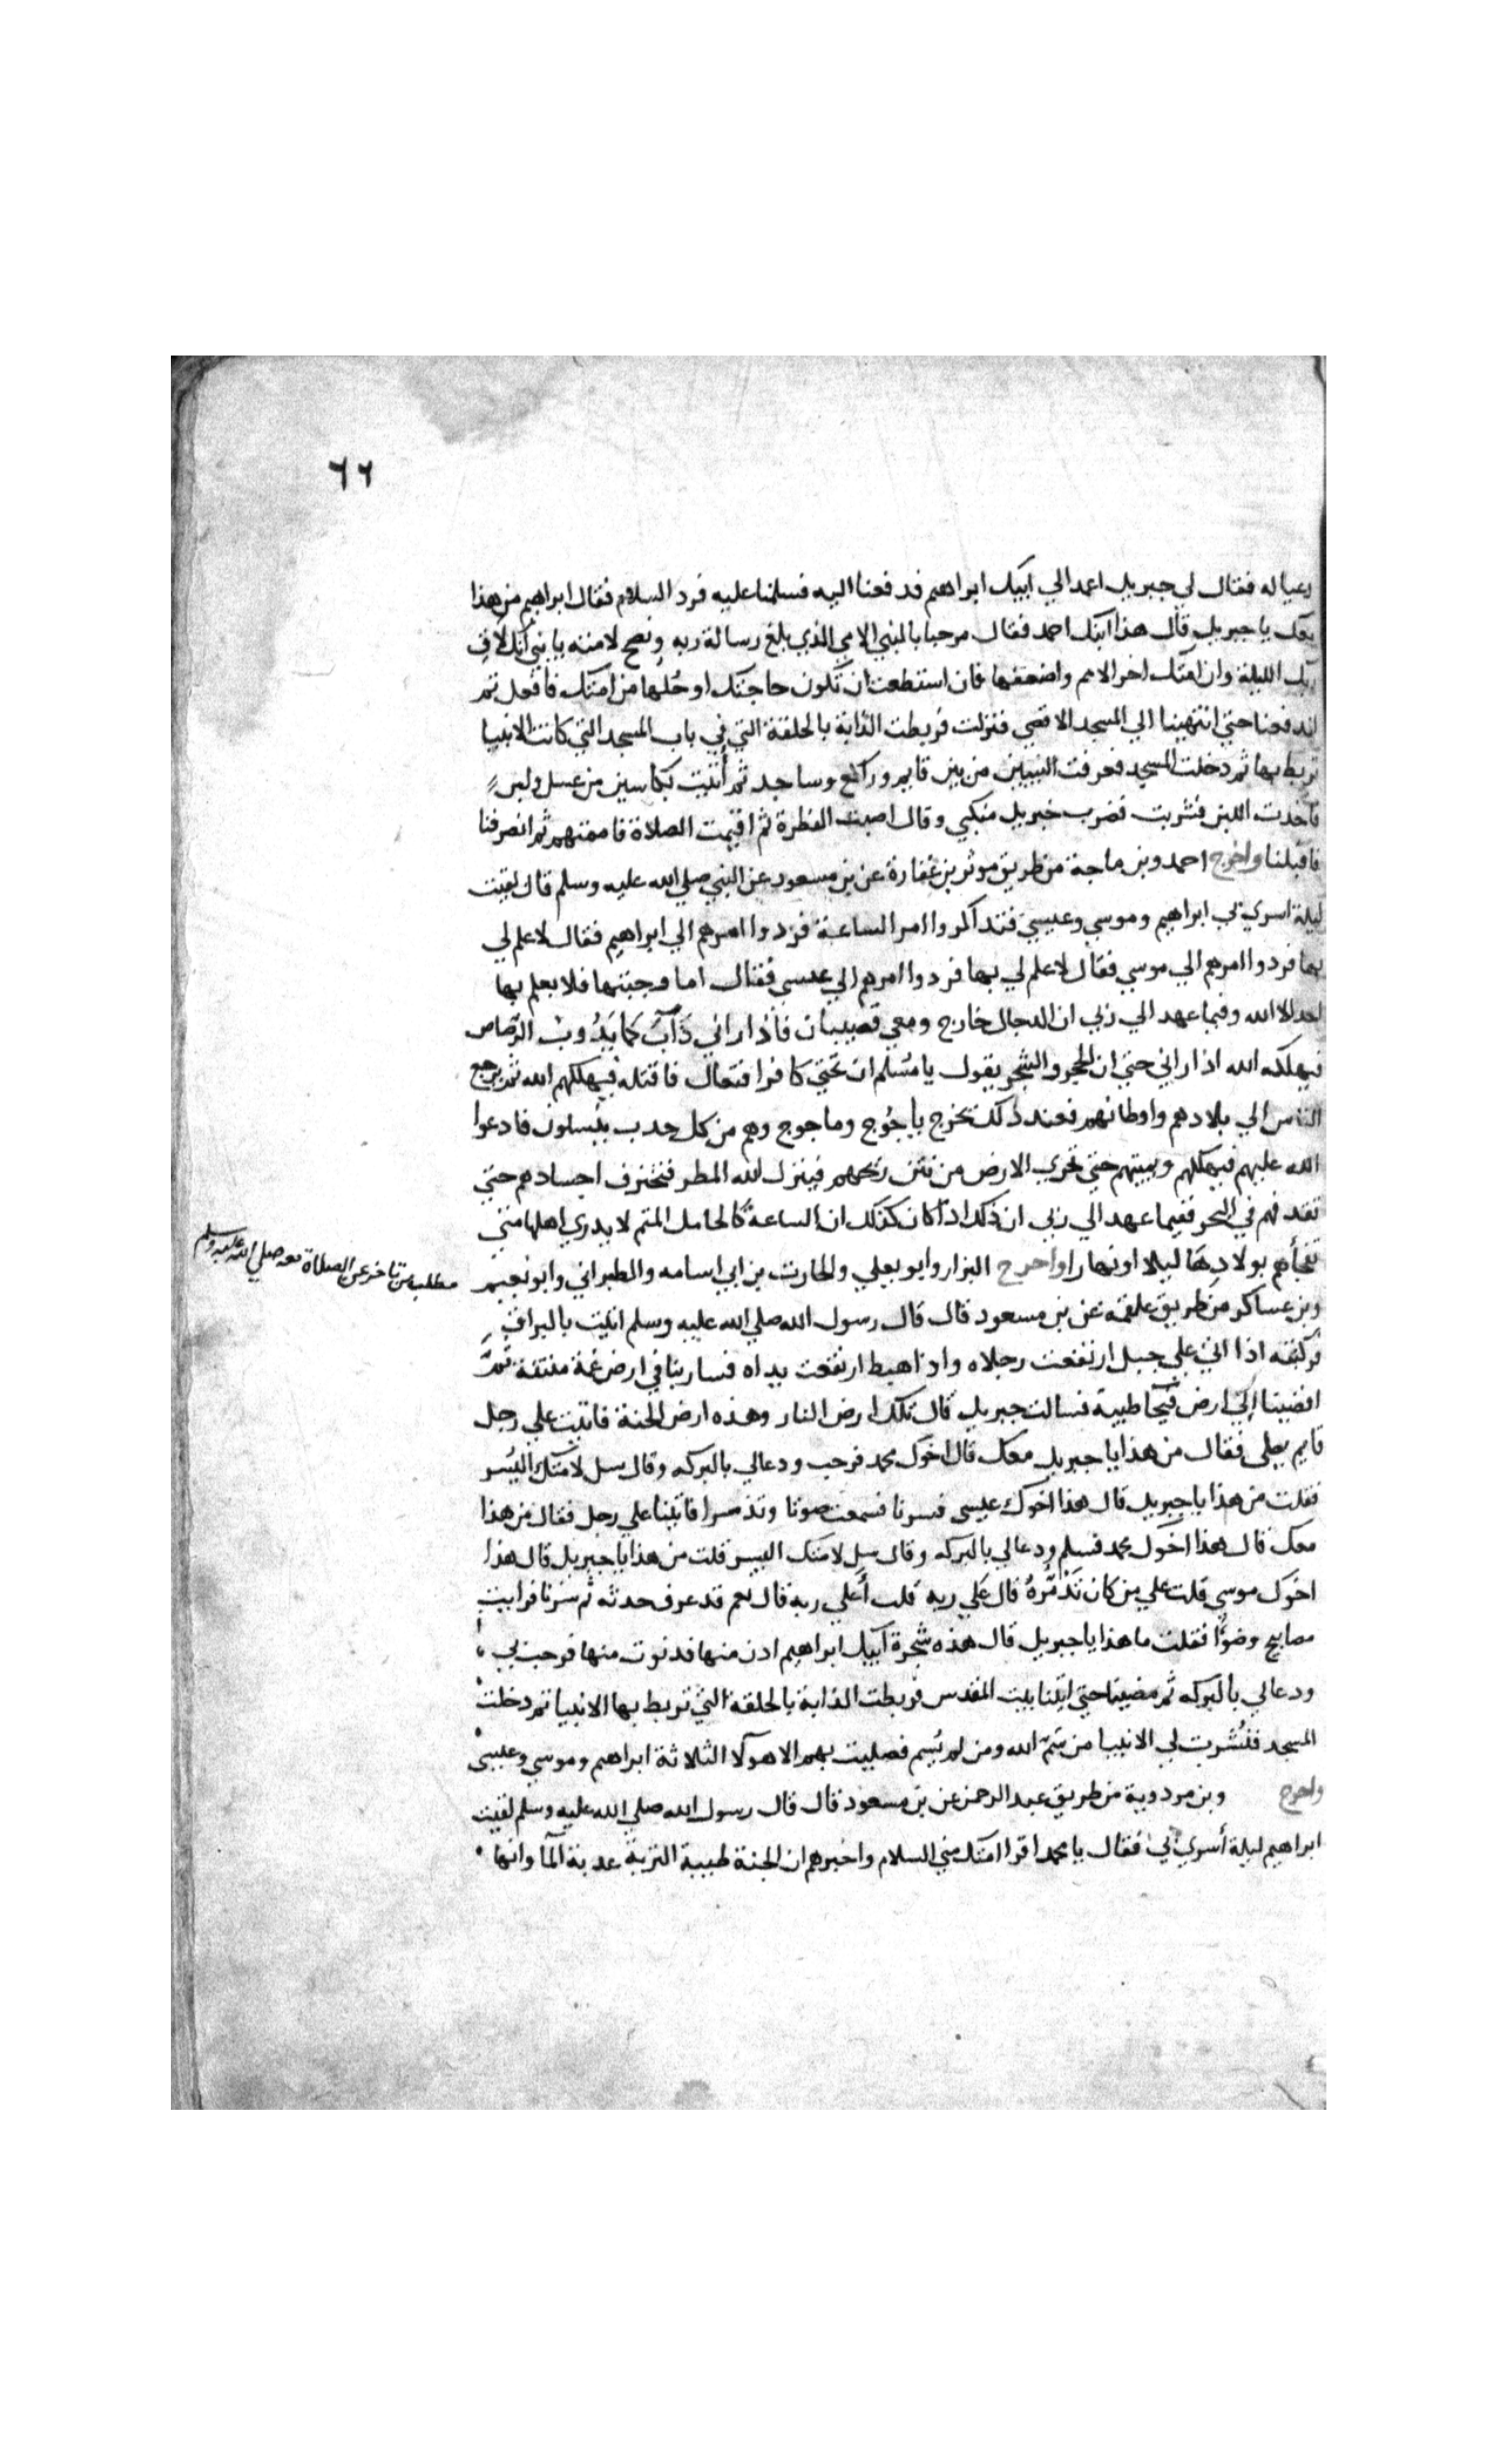 ٦٦
وعياله فقال لي جبريل اعمد الي ابيك ابراهيم فدفعنا اليه فسلمنا عليه فرد السلام فقال ابراهيم من هذا
معك يا جبريل قال هذا ابنك احمد فقال مرحبا بالنبي الامي الذي بلغ رسالة ربه ونصح لامته يا بني انك لاق
ربك الليلة وان امتك اخر الامم واضعفها فان استطعت ان تكون حاجتك او جلها من امتك فافعل ثم
اندفعنا حتي انتهينا الي المسجد الاقصي فنزلت فربطت الدابة بالحلقة التي في باب المسجد التي كانت الانبيا
تربط بها ثم دخلت المسجد فعرفت النبيين من بين قايم وراكع وساجد ثم أتيت بكاسين من عسل ولبن
فاخذت اللبن فشربت فضرب جبريل منكبي وقال اصبت الفطرة ثم اقيمت الصلاة فاممتهم ثم انصرفنا
فاقبلنا واخرج احمد وبن ماجة من طريق موثر بن غفارة عن بن مسعود عن النبي صلي الله عليه وسلم قال لقيت
ليلة اسري بي ابراهيم وموسي وعيسي فتذاكروا امر الساعة فردوا امرهم الي ابراهيم فقال لا علم لي
بها فردوا امرهم الي موسي فقال لا علم لي بها فردوا امرهم الي عيسي فقال اما وجبتها فلا يعلم بها
احد الا الله وفيما عهد الي ربي ان الدجال خارج ومعي قضيبان فاذا راني ذَآبَ كما يَذُوبُ الرصاص
فيهلكه الله اذا راني حتي ان الحجر والشجر يقول يا مُسلم ان تحتي كافرا فتعال فاقتله فيهلكهم الله ثم يرجع
الناس الي بلادهم واوطانهم فعند ذلك يخرج ياجُوج وماجوج وهم من كل حدب ينسلون فادعوا
الله عليهم فيهلكهم ويميتهم حتي تجري الارض من نتن ريحهم فينزل الله المطر فتخترف اجسادهم حتي
تقذفهم في البحر ففيما عهد الي ربي ان ذلك اذا كان كذلك ان الساعة كالحامل المتم لا يدري اهلها متي
تفجأهم بولادِهَا ليلا او نهارا واخرج البزار وابو يعلي والحارث بن ابي اسامه والطبراني وابو نعيم
وبن عساكر من طريق علقمه عن بن مسعود قال قال رسول الله صلي الله عليه وسلم اتيت بالبراق
فركبته اذا اتي علي جبل ارتفعت رجلاه واذا هبط ارتفعت يداه فسار بنا في ارض غمة منتنة ثم
افضينا إلي ارض فيحا طيبة فسالت جبريل قال تلك ارض النار وهذه ارض الجنة فاتيت علي رجل
قايم يصلي فقال من هذا يا جبريل معك قال اخوك محمد فرحب ودعا لي بالبركه وقال سل لامتك اليُسر
فقلت من هذا يا جبريل قال هذا اخوك عيسي فسرنا فسمعت صوتا وتذمرا فاتينا علي رجل فقال من هذا
معك قال هذا اخوك محمد فسلم ودعا لي بالبركه وقال سل لامتك اليسر قلت من هذا يا جبريل قال هذا
اخوك موسي قلت علي من كان تَذَمُّرهُ قال عَلي ربه قلت أعلي ربه قال نعم قد عرف حدته ثم سرنا فرايت
مصابيح وضوًا فقلت ما هذا يا جبريل قال هذه شجرة ابيك ابراهيم ادن منها فدنوت منها فرحب بي
ودعا لي بالبركه ثم مضينا حتي اتينا بيت المقدس فربطت الدابة بالحلقة التي تربط بها الانبيا ثم دخلت
المسجد فنُشرت لي الانبيا من سَمّ الله ومن لم يُسم فصليت بهم الا هولا الثلاثة ابراهيم وموسي وعيسي
واخرج وبن مردوية من طريق عبد الرحمن عن بن مسعود قال قال رسول الله صلي الله عليه وسلم لقيت
ابراهيم ليلة أسري بي فقال يا محمد اقرا امتك مني السلام واخبرهم ان الجنة طيبة التربة عذبة المآ وانها
مطلب من تاخر عن الصلاة معه صلي الله عليه وسلم